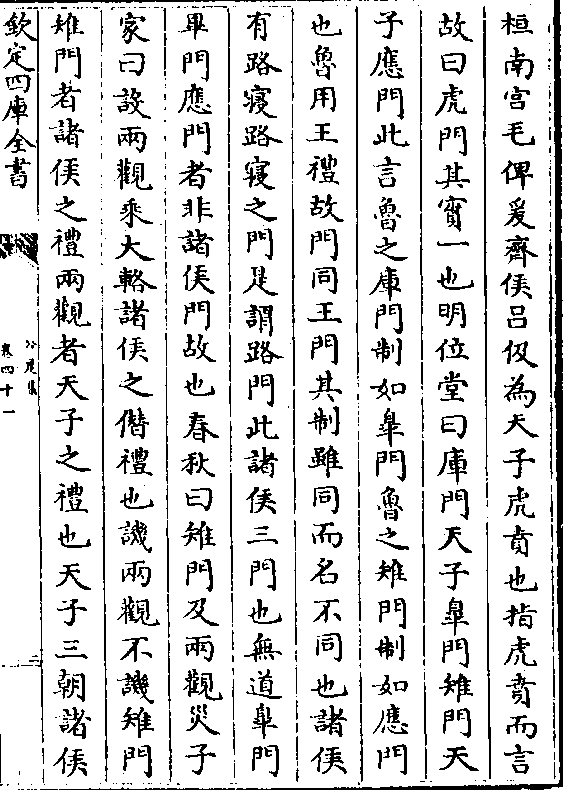 桓南宫毛俾爰齊侯吕伋為天子虎賁也指虎賁而言
故曰虎門其實一也明位堂曰庫門天子臯門雉門天
子應門此言魯之庫門制如臯門魯之雉門制如應門
也魯用王禮故門同王門其制雖同而名不同也諸侯
有路寝路寝之門是謂路門此諸侯三門也無道臯門
畢門應門者非諸侯門故也春秋曰雉門及兩觀災子
家曰設兩觀乘大輅諸侯之僭禮也譏兩觀不譏雉門
雉門者諸侯之禮兩觀者天子之禮也天子三朝諸侯
欽定四庫全書
卷四十一